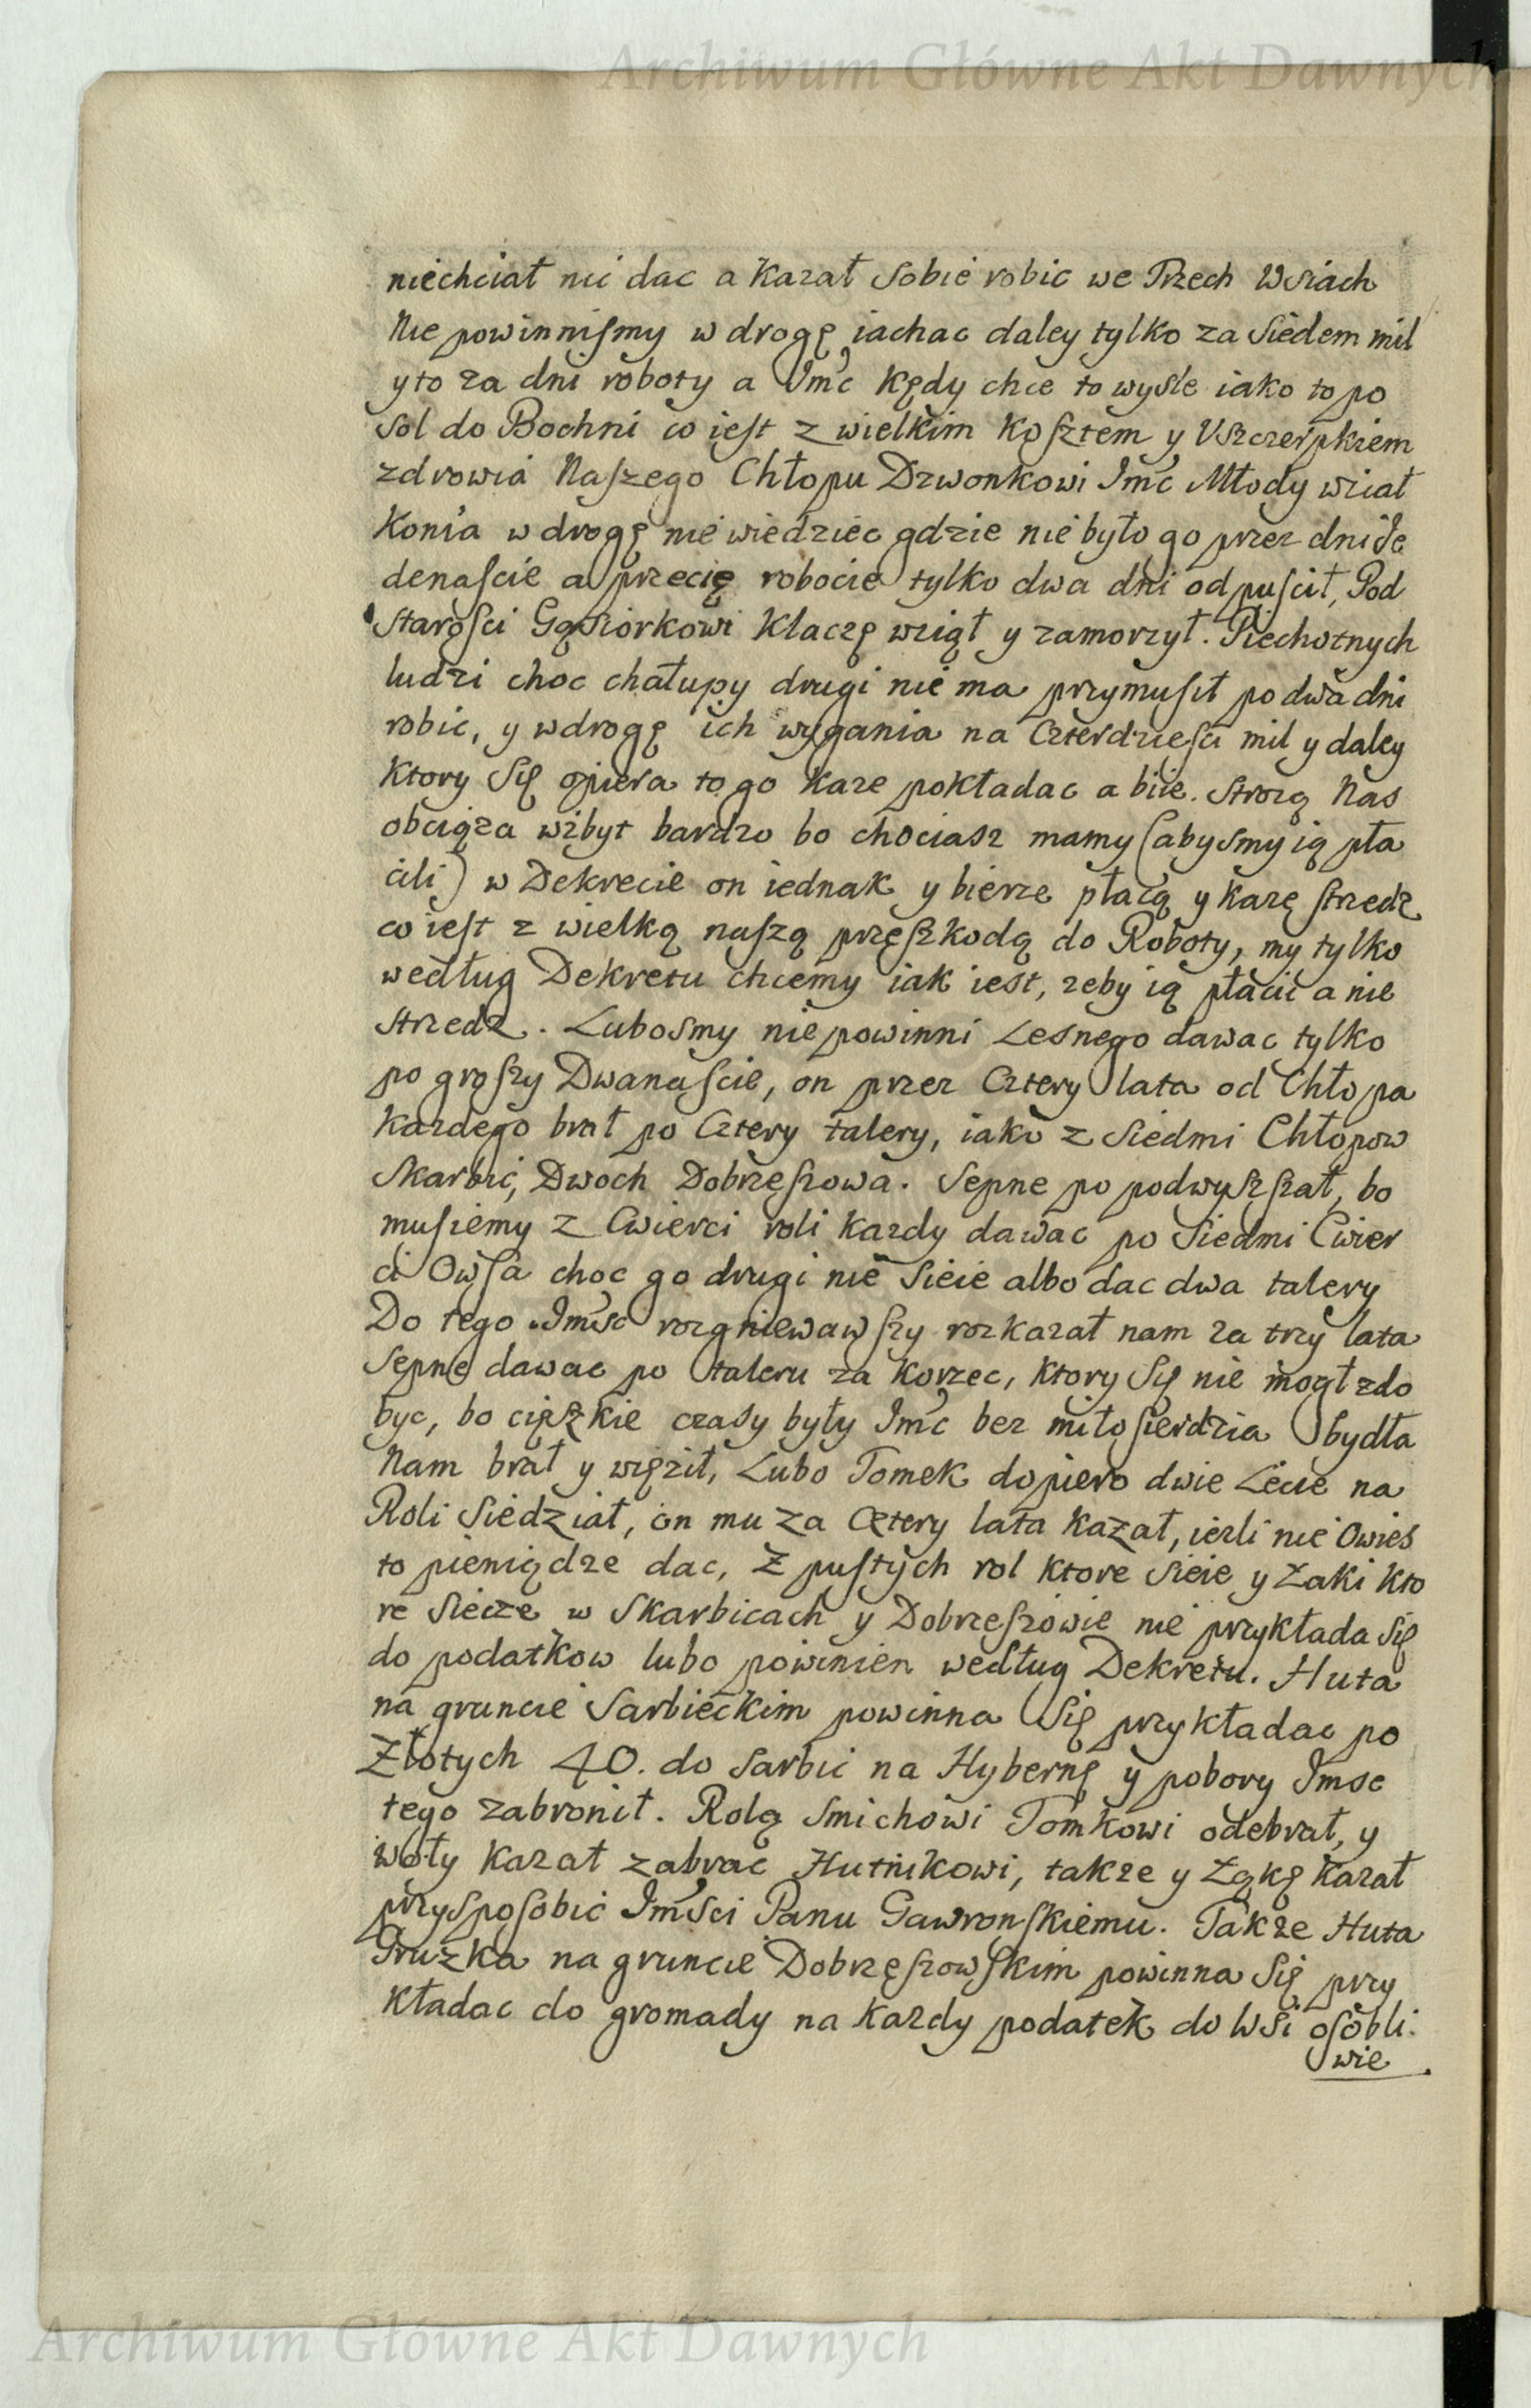 Archiwum Główne Akt Dawnych
niechciał nic dac a kazał sobie robic we Trzech Wsiach
Nie powinnismy w drogę iachac daley tylko za siedem mil
y to za dni roboty a Jmc kędy chce to wysle iako to po
sol do Bochni co iest z wielkim kosztem y Vszczerpkiem
zdrowia Naszego Chłopu Dzwonkowi Jmc Młody wział
konia w drogę nie wiedziec gdzie nie było go przez dni Je
denascie a przecię robocie tylko dwa dni odpuscił, Pod
Starosci Gąsiorkowi klaczę wziął y zamorzył. Piechotnych
ludzi choc chałupy drugi nie ma przymusił po dwa dni
robic, y w drogę ich wygania na Czterdziesci mil y daley
ktory się opiera to go kaze pokładac a biie. Strozą Nas
obciąza wzbyt bardzo bo chociasz mamy (abysmy ią pła
cili) w Dekrecie on iednak y bierze płacą y kazę strzedz
co iest z wielką naszą przeszkodą do Roboty, my tylko
według Dekretu chcemy iak iest, zeby ią płacic a nie
strzedz. Lubosmy nie powinni Lesnego dawac tylko
po groszy Dwanascie, on przez Cztery lata od Chłopa
kazdego brał po Cztery talery, iako z siedmi Chłopow
Skarbic, Dwoch Dobrzeszowa. Sepne po podwyszszał, bo
musiemy z Cwierci roli kazdy dawac po siedmi Cwier
ci Owsa choc go drugi nie sieie albo dac dwa talery
Do tego Jmsc rozgniewawszy rozkazał nam za trzy lata
Sepne dawac po taleru za korzec, ktory się nie mogł zdo
byc, bo cięszkie czasy były Jmc bez miłosierdzia bydła
Nam brał y więził, Lubo Tomek dopiero dwie Lecie na
Roli siedział, on mu za Cztery lata kazał, iezli nie Owies
to pieniądze dac, z pustych rol ktore sieie y Łaki kto
re siecze w Skarbicach y Dobrzeszowie nie przykłada się
do podatkow lubo powinien według Dekretu. Huta
na gruncie Sarbieckim powinna się przykładac po
Złotych 40. do Sarbic na Hybernę y pobory Jmsc
tego zabronił. Rolą Smichowi Tomkowi odebrał, y
woły kazał zabrac Hutnikowi, takze y Łąkę kazał
przysposobic Jmsci Panu Gawronskiemu. Takze Huta
Pruzka na gruncie Dobrzeszowskim powinna się przy
kładac do gromady na kazdy podatek do Wsi osobli.
wie
Archiwum Główne Akt Dawnych